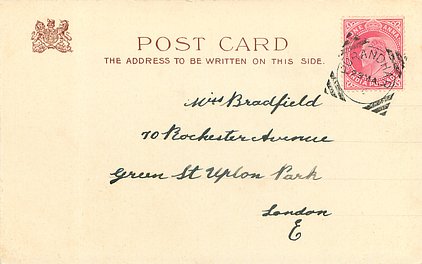 POST CARD
THE ADDRESS TO BE WRITTEN ON THIS SIDE.
Miss Bradfield
70 Rochester Avenue
Green St Upton Park
London
E